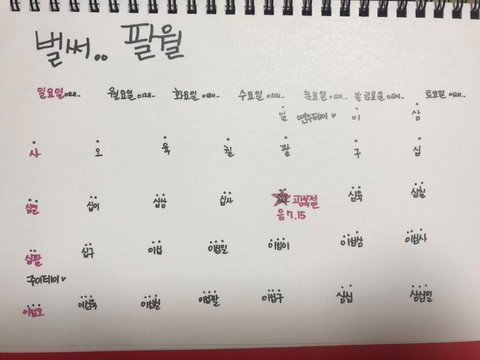 벌써.. 팔월
일요일이래.. 월요일이래.. 화요일이래.. 수요일이래.. 목요일이래.. 금요일이래.. 토요일이래..
일 연우데이♥ 이 삼
사 오 육 칠 팔 구 십
십일 십이 십삼 십사 광복절 십육 십칠
음 7.15
십팔 십구 이십 이십일 이십이 이십삼 이십사
주이데이♥
이십오 이십육 이십칠 이십팔 이십구 삼십 삼십일